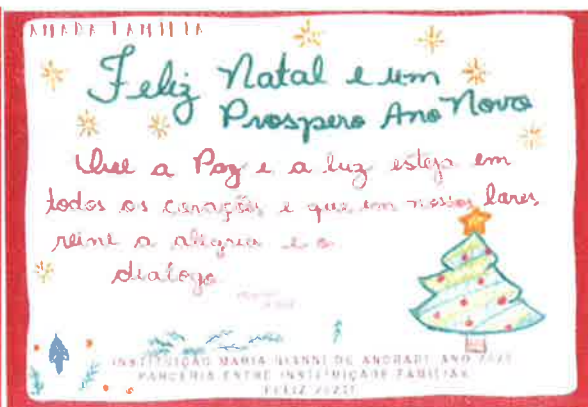 AMADA FAMILIA
Feliz Natal e um
Prospero Ano Novo
Que a Paz e a luz esteja em
todos os corações e que em nossos lares
reine a alegria e o
dialogo
INSTITUIÇÃO MARIA GIANNI DE ANDRADE ANO
PARCERIA ENTRE INSTITUIÇÃO E FAMILIAS
FELIZ 2021!